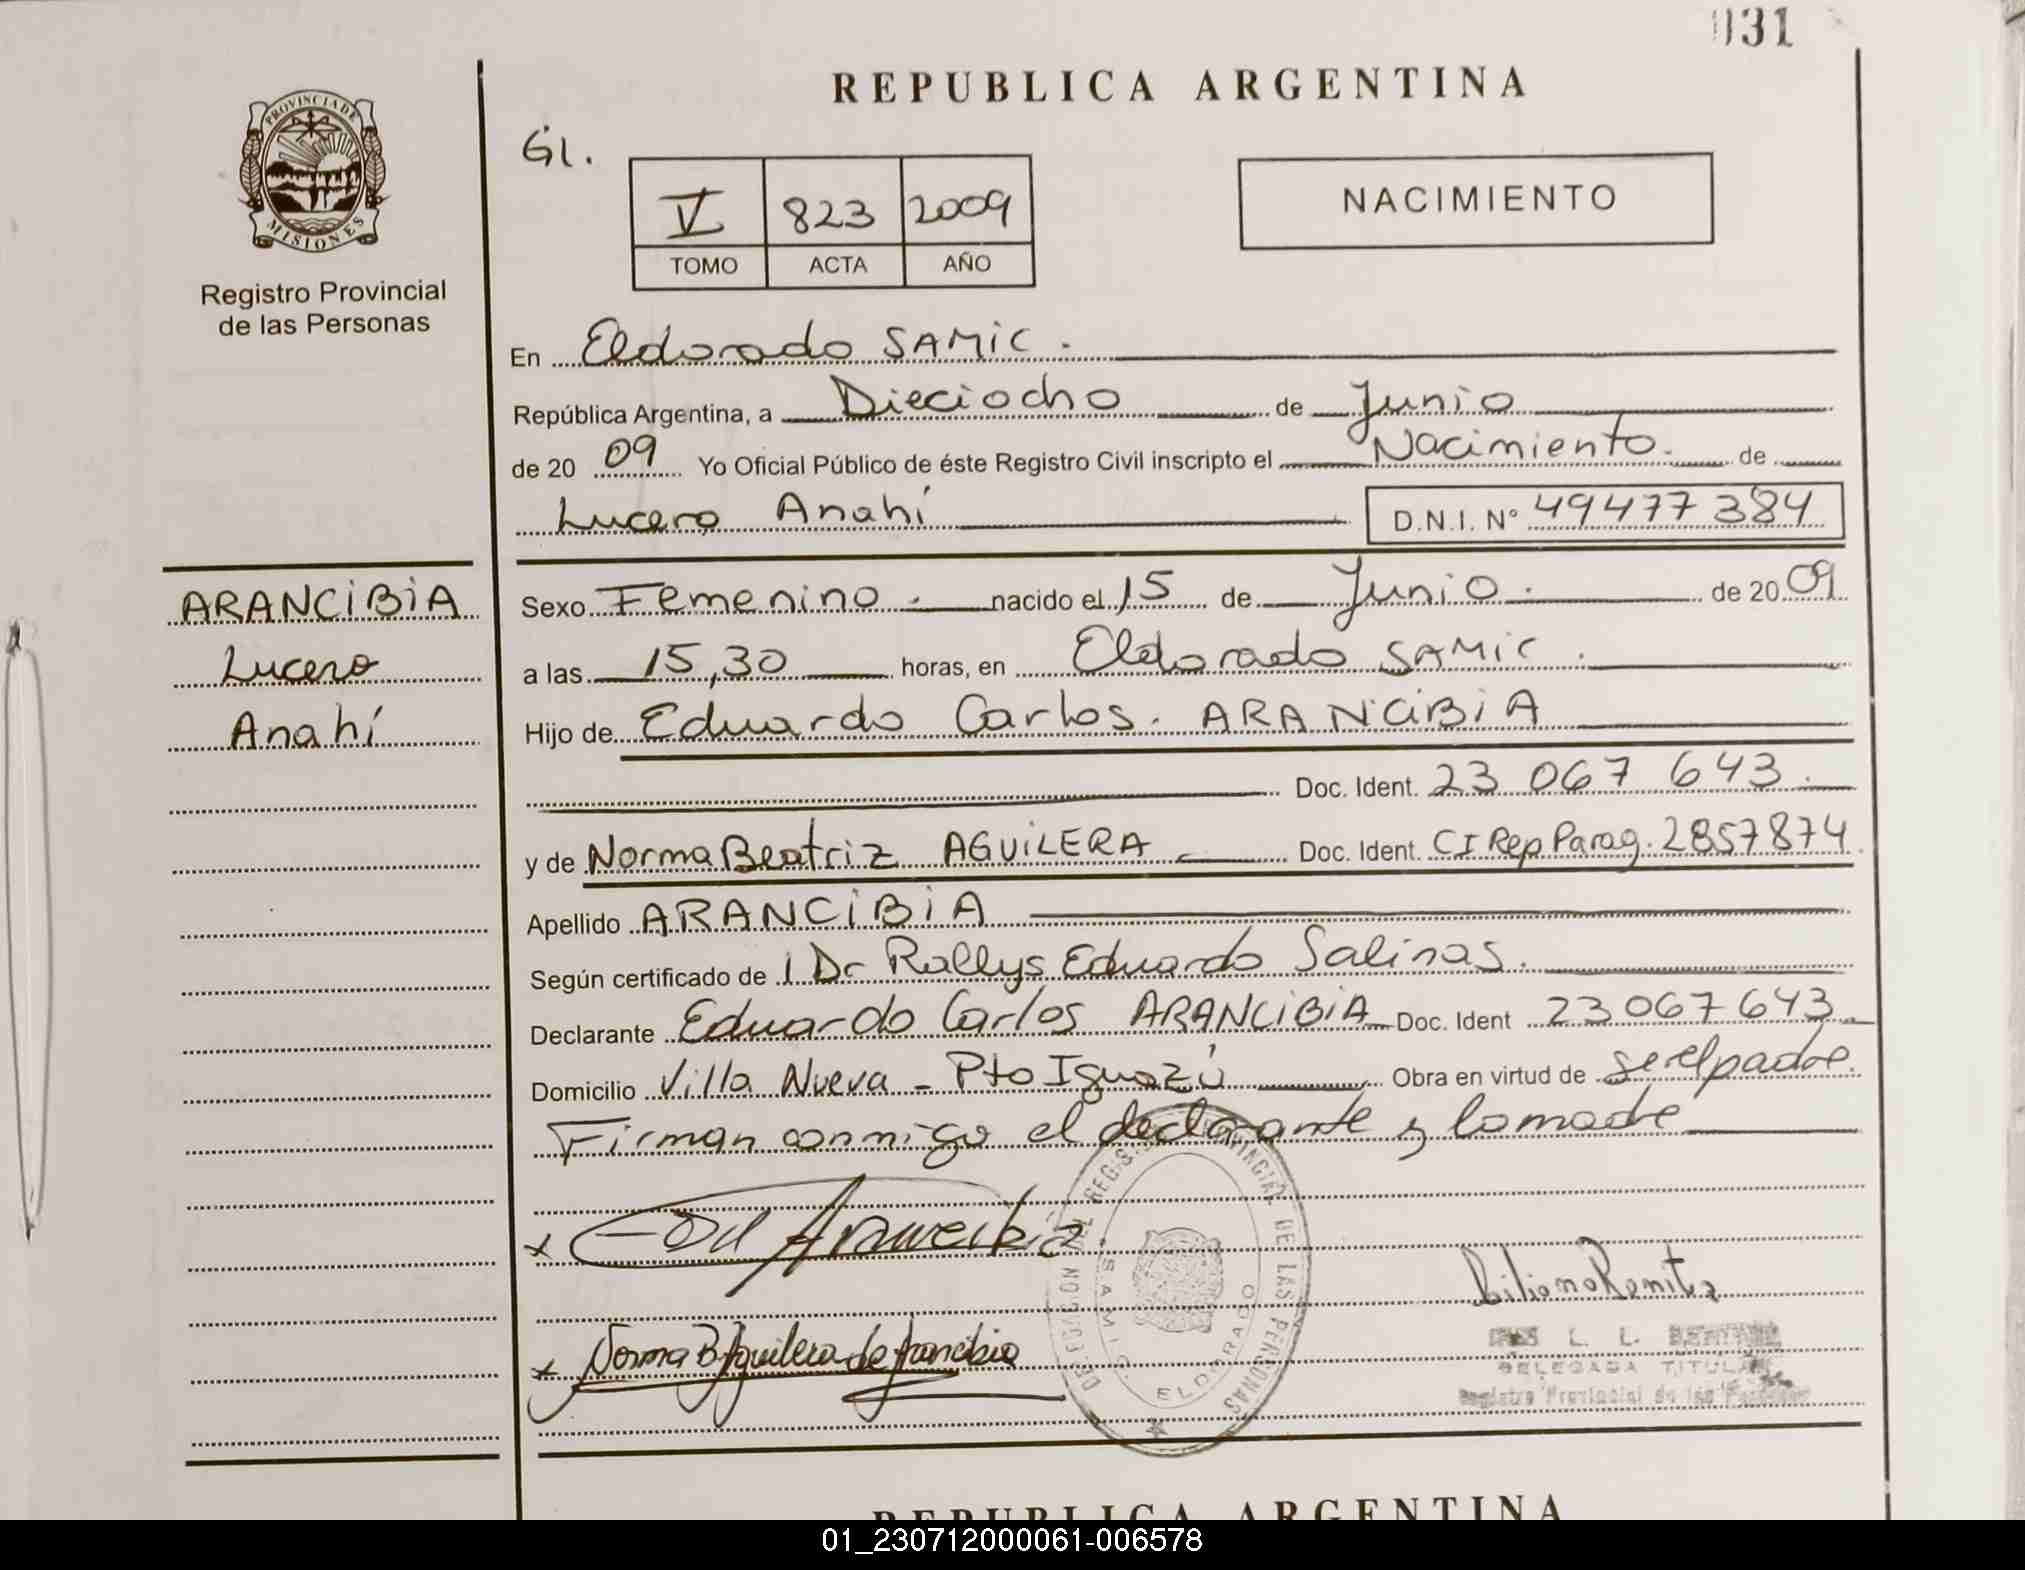 031
REPUBLICA ARGENTINA
PROVINCIA DE
MISIONES
Registro Provincial
de las Personas
G1.
V 823 2009
TOMO ACTA AÑO
NACIMIENTO
En Eldorado SAMIC.
República Argentina, a Dieciocho de Junio
de 20 09 Yo Oficial Público de éste Registro Civil inscripto el Nacimiento. de
Lucero Anahí D.N.I. N° 49477384
ARANCIBIA
Lucero
Anahí
Sexo Femenino. nacido el 15 de Junio. de 20 09
a las 15,30 horas, en Eldorado SAMIC.
Hijo de Eduardo Carlos. ARANCIBIA
Doc. Ident. 23 067 643.
y de Norma Beatriz AGUILERA Doc. Ident. CI Rep Parag. 2857874
Apellido ARANCIBIA
Según certificado de 1 Dr Rallys Eduardo Salinas.
Declarante Eduardo Carlos ARANCIBIA Doc. Ident 23067643
Domicilio Villa Nueva - Pto Iguazú Obra en virtud de ser el padre.
Firman conmigo el declarante y la madre
x Edu Arancibia
x Norma B Aguilera de Arancibia
DELEGACION DEL REGISTRO PROVINCIAL DE LAS PERSONAS
S.A.M.I.C. ELDORADO
Liliana Benitez
L. L.
DELEGADA TITULAR
Registro Provincial de las Personas
REPUBLICA ARGENTINA
01_230712000061-006578